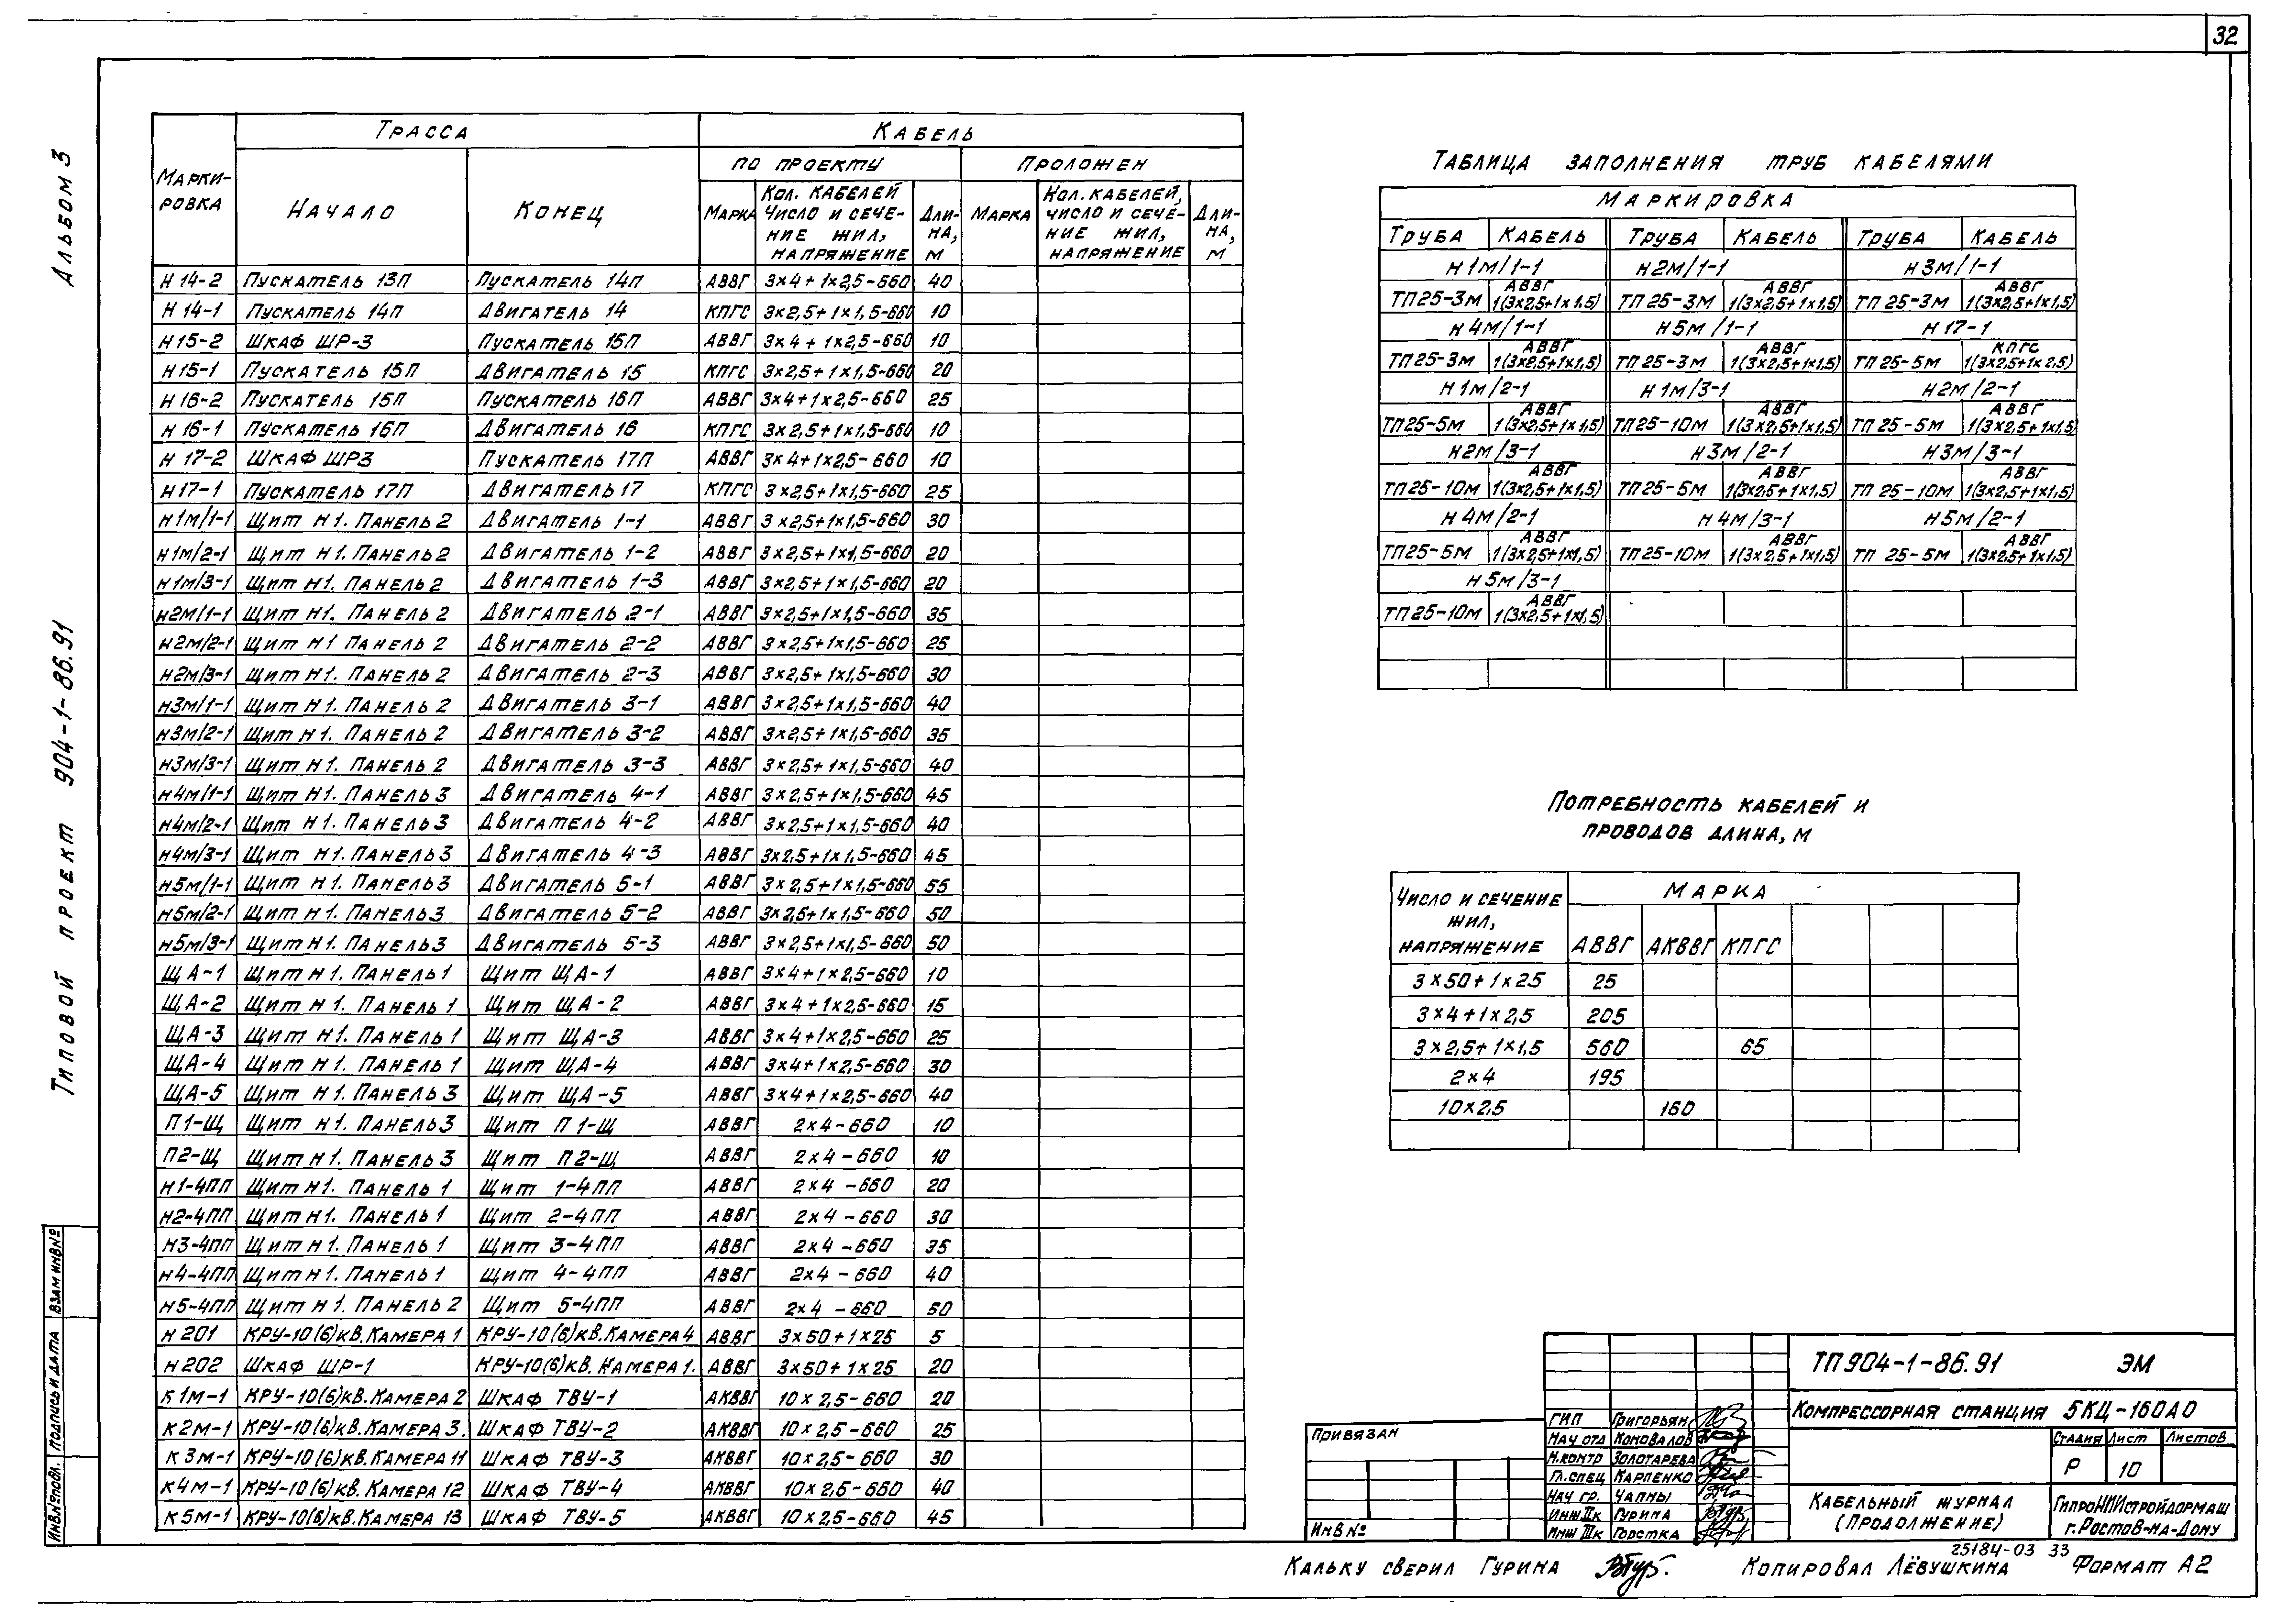 32
Альбом 3
Типовой проект 904-1-86.91
Взам инв№
Подпись и дата
Инв№подл.
Марки-
ровка
Трасса
Кабель
Начало
Конец
по проекту
проложен
Марка
Кол. кабелей
число и сече-
ние жил,
напряжение
Дли-
на,
м
Марка
Кол. кабелей,
число и сече-
ние жил,
напряжение
Дли-
на,
м
Н14-2 Пускатель 13П Пускатель 14П АВВГ 3×4+1×2,5-660 40
Н14-1 Пускатель 14П Двигатель 14 КПГС 3×2,5+1×1,5-660 10
Н15-2 Шкаф ШР-3 Пускатель 15П АВВГ 3×4+1×2,5-660 10
Н15-1 Пускатель 15П Двигатель 15 КПГС 3×2,5+1×1,5-660 20
Н16-2 Пускатель 15П Пускатель 16П АВВГ 3×4+1×2,5-660 25
Н16-1 Пускатель 16П Двигатель 16 КПГС 3×2,5+1×1,5-660 10
Н17-2 Шкаф ШР3 Пускатель 17П АВВГ 3×4+1×2,5-660 10
Н17-1 Пускатель 17П Двигатель 17 КПГС 3×2,5+1×1,5-660 25
Н1м/1-1 Щит Н1. Панель 2 Двигатель 1-1 АВВГ 3×2,5+1×1,5-660 30
Н1м/2-1 Щит Н1. Панель 2 Двигатель 1-2 АВВГ 3×2,5+1×1,5-660 20
Н1м/3-1 Щит Н1. Панель 2 Двигатель 1-3 АВВГ 3×2,5+1×1,5-660 20
Н2м/1-1 Щит Н1. Панель 2 Двигатель 2-1 АВВГ 3×2,5+1×1,5-660 35
Н2м/2-1 Щит Н1 Панель 2 Двигатель 2-2 АВВГ 3×2,5+1×1,5-660 25
Н2м/3-1 Щит Н1. Панель 2 Двигатель 2-3 АВВГ 3×2,5+1×1,5-660 30
Н3м/1-1 Щит Н1. Панель 2 Двигатель 3-1 АВВГ 3×2,5+1×1,5-660 40
Н3м/2-1 Щит Н1. Панель 2 Двигатель 3-2 АВВГ 3×2,5+1×1,5-660 35
Н3м/3-1 Щит Н1. Панель 2 Двигатель 3-3 АВВГ 3×2,5+1×1,5-660 40
Н4м/1-1 Щит Н1. Панель 3 Двигатель 4-1 АВВГ 3×2,5+1×1,5-660 45
Н4м/2-1 Щит Н1. Панель 3 Двигатель 4-2 АВВГ 3×2,5+1×1,5-660 40
Н4м/3-1 Щит Н1. Панель 3 Двигатель 4-3 АВВГ 3×2,5+1×1,5-660 45
Н5м/1-1 Щит Н1. Панель 3 Двигатель 5-1 АВВГ 3×2,5+1×1,5-660 55
Н5м/2-1 Щит Н1. Панель 3 Двигатель 5-2 АВВГ 3×2,5+1×1,5-660 50
Н5м/3-1 Щит Н1. Панель 3 Двигатель 5-3 АВВГ 3×2,5+1×1,5-660 50
ЩА-1 Щит Н1. Панель 1 Щит ЩА-1 АВВГ 3×4+1×2,5-660 10
ЩА-2 Щит Н1. Панель 1 Щит ЩА-2 АВВГ 3×4+1×2,5-660 15
ЩА-3 Щит Н1. Панель 1 Щит ЩА-3 АВВГ 3×4+1×2,5-660 25
ЩА-4 Щит Н1. Панель 1 Щит ЩА-4 АВВГ 3×4+1×2,5-660 30
ЩА-5 Щит Н1. Панель 3 Щит ЩА-5 АВВГ 3×4+1×2,5-660 40
П1-Щ Щит Н1. Панель 3 Щит П1-Щ АВВГ 2×4-660 10
П2-Щ Щит Н1. Панель 3 Щит П2-Щ АВВГ 2×4-660 10
Н1-4ПП Щит Н1. Панель 1 Щит 1-4ПП АВВГ 2×4-660 20
Н2-4ПП Щит Н1. Панель 1 Щит 2-4ПП АВВГ 2×4-660 30
Н3-4ПП Щит Н1. Панель 1 Щит 3-4ПП АВВГ 2×4-660 35
Н4-4ПП Щит Н1. Панель 1 Щит 4-4ПП АВВГ 2×4-660 40
Н5-4ПП Щит Н1. Панель 2 Щит 5-4ПП АВВГ 2×4-660 50
Н201 КРУ-10(6)кВ. Камера 1 КРУ-10(6)кВ. Камера 4 АВВГ 3×50+1×25 5
Н202 Шкаф ШР-1 КРУ-10(6)кВ. Камера 1. АВВГ 3×50+1×25 20
К1м-1 КРУ-10(6)кВ. Камера 2 Шкаф ТВУ-1 АКВВГ 10×2,5-660 20
К2м-1 КРУ-10(6)кВ. Камера 3. Шкаф ТВУ-2 АКВВГ 10×2,5-660 25
К3м-1 КРУ-10(6)кВ. Камера 11 Шкаф ТВУ-3 АКВВГ 10×2,5-660 30
К4м-1 КРУ-10(6)кВ. Камера 12 Шкаф ТВУ-4 АКВВГ 10×2,5-660 40
К5м-1 КРУ-10(6)кВ. Камера 13 Шкаф ТВУ-5 АКВВГ 10×2,5-660 45
Таблица заполнения труб кабелями
Маркировка
Труба Кабель Труба Кабель Труба Кабель
Н1м/1-1 Н2м/1-1 Н3м/1-1
АВВГ АВВГ АВВГ
ТП25-3м 1(3×2,5+1×1,5) ТП25-3м 1(3×2,5+1×1,5) ТП25-3м 1(3×2,5+1×1,5)
Н4м/1-1 Н5м/1-1 Н17-1
АВВГ АВВГ КПГС
ТП25-3м 1(3×2,5+1×1,5) ТП25-3м 1(3×2,5+1×1,5) ТП25-5м 1(3×2,5+1×2,5)
Н1м/2-1 Н1м/3-1 Н2м/2-1
АВВГ АВВГ АВВГ
ТП25-5м 1(3×2,5+1×1,5) ТП25-10м 1(3×2,5+1×1,5) ТП25-5м 1(3×2,5+1×1,5)
Н2м/3-1 Н3м/2-1 Н3м/3-1
АВВГ АВВГ АВВГ
ТП25-10м 1(3×2,5+1×1,5) ТП25-5м 1(3×2,5+1×1,5) ТП25-10м 1(3×2,5+1×1,5)
Н4м/2-1 Н4м/3-1 Н5м/2-1
АВВГ АВВГ АВВГ
ТП25-5м 1(3×2,5+1×1,5) ТП25-10м 1(3×2,5+1×1,5) ТП25-5м 1(3×2,5+1×1,5)
Н5м/3-1
АВВГ
ТП25-10м 1(3×2,5+1×1,5)
Потребность кабелей и
проводов длина, м
Число и сечение
жил,
напряжение
Марка
АВВГ АКВВГ КПГС
3×50+1×25 25
3×4+1×2,5 205
3×2,5+1×1,5 560 65
2×4 195
10×2,5 160
Привязан
Инв№
ГИП Григорьян
Нач отд Коновалов
Н.контр Золотарева
Гл.спец Карпенко
Нач гр. Чапны
Инж IIк Гурина
Инж IIIк Горстка
ТП904-1-86.91 ЭМ
Компрессорная станция 5КЦ-160АО
Стадия Лист Листов
Р 10
Кабельный журнал
(продолжение)
ГипроНИИстройдормаш
г.Ростов-на-Дону
25184-03 33
Кальку сверил Гурина
Копировал Лёвушкина
Формат А2